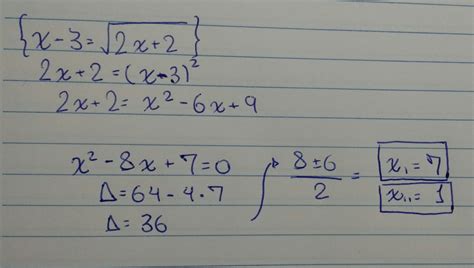 {x-3=√2x+2}
2x+2=(x-3)²
2x+2= x²-6x+9
x²-8x+7=0
Δ=64-4·7
Δ=36
8±6/2 = x₁=7
x₁₁=1